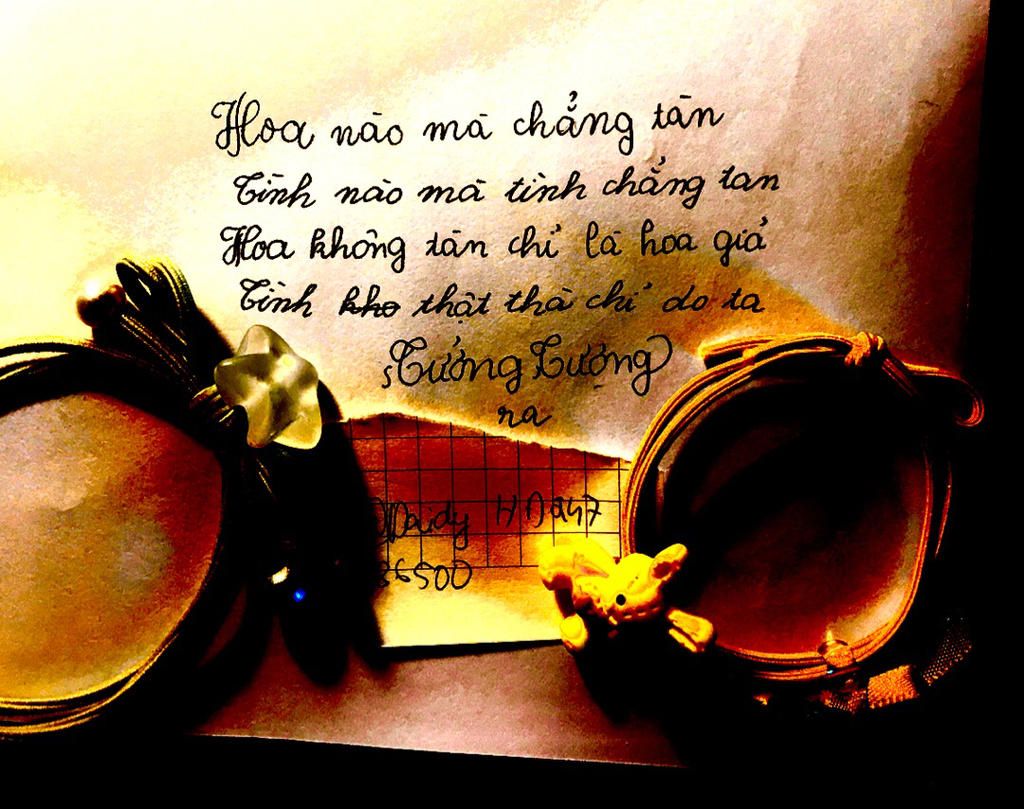 Hoa nào mà chẳng tàn
Tình nào mà tình chẳng tan
Hoa không tàn chỉ là hoa giả
Tình kho thật thà chỉ do ta
Tưởng Tượng
ra
36500